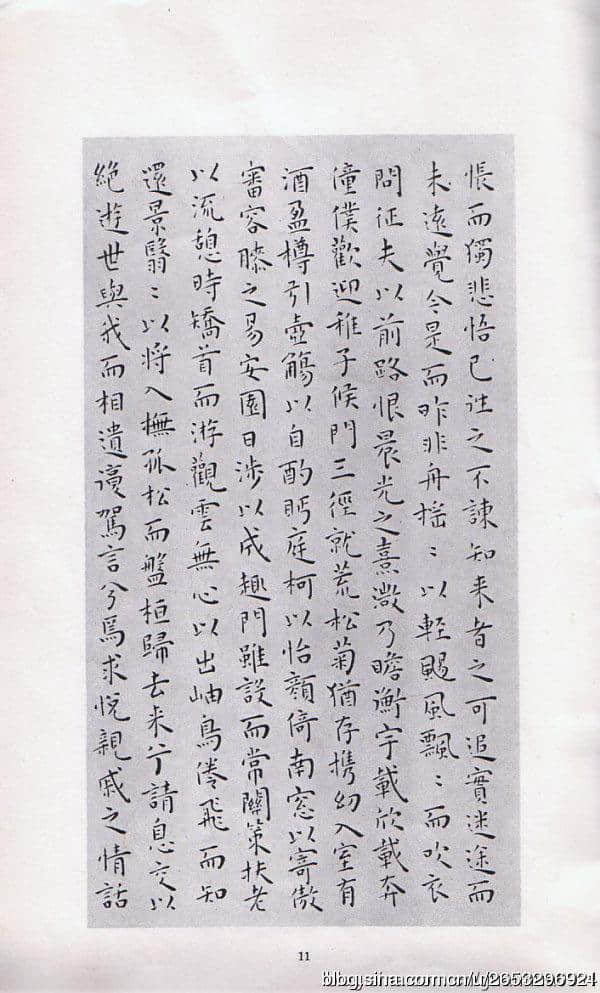 悵而獨悲悟已往之不諫知来者之可追實迷途而
未遠覺今是而昨非舟搖〻以輕颺風飄〻而吹衣
問征夫以前路恨晨光之熹微乃瞻衡宇載欣載奔
僮僕歡迎稚子候門三徑就荒松菊猶存携幼入室有
酒盈樽引壺觴以自酌眄庭柯以怡顏倚南窓以寄傲
審容膝之易安園日涉以成趣門雖設而常關策扶老
以流憩時矯首而游觀雲無心以出岫鳥倦飛而知
還景翳〻以將入撫孤松而盤桓歸去来兮請息交以
絕遊世與我而相遺復駕言兮焉求悅親戚之情話
11
blog.sina.com.cn/u/2653296924